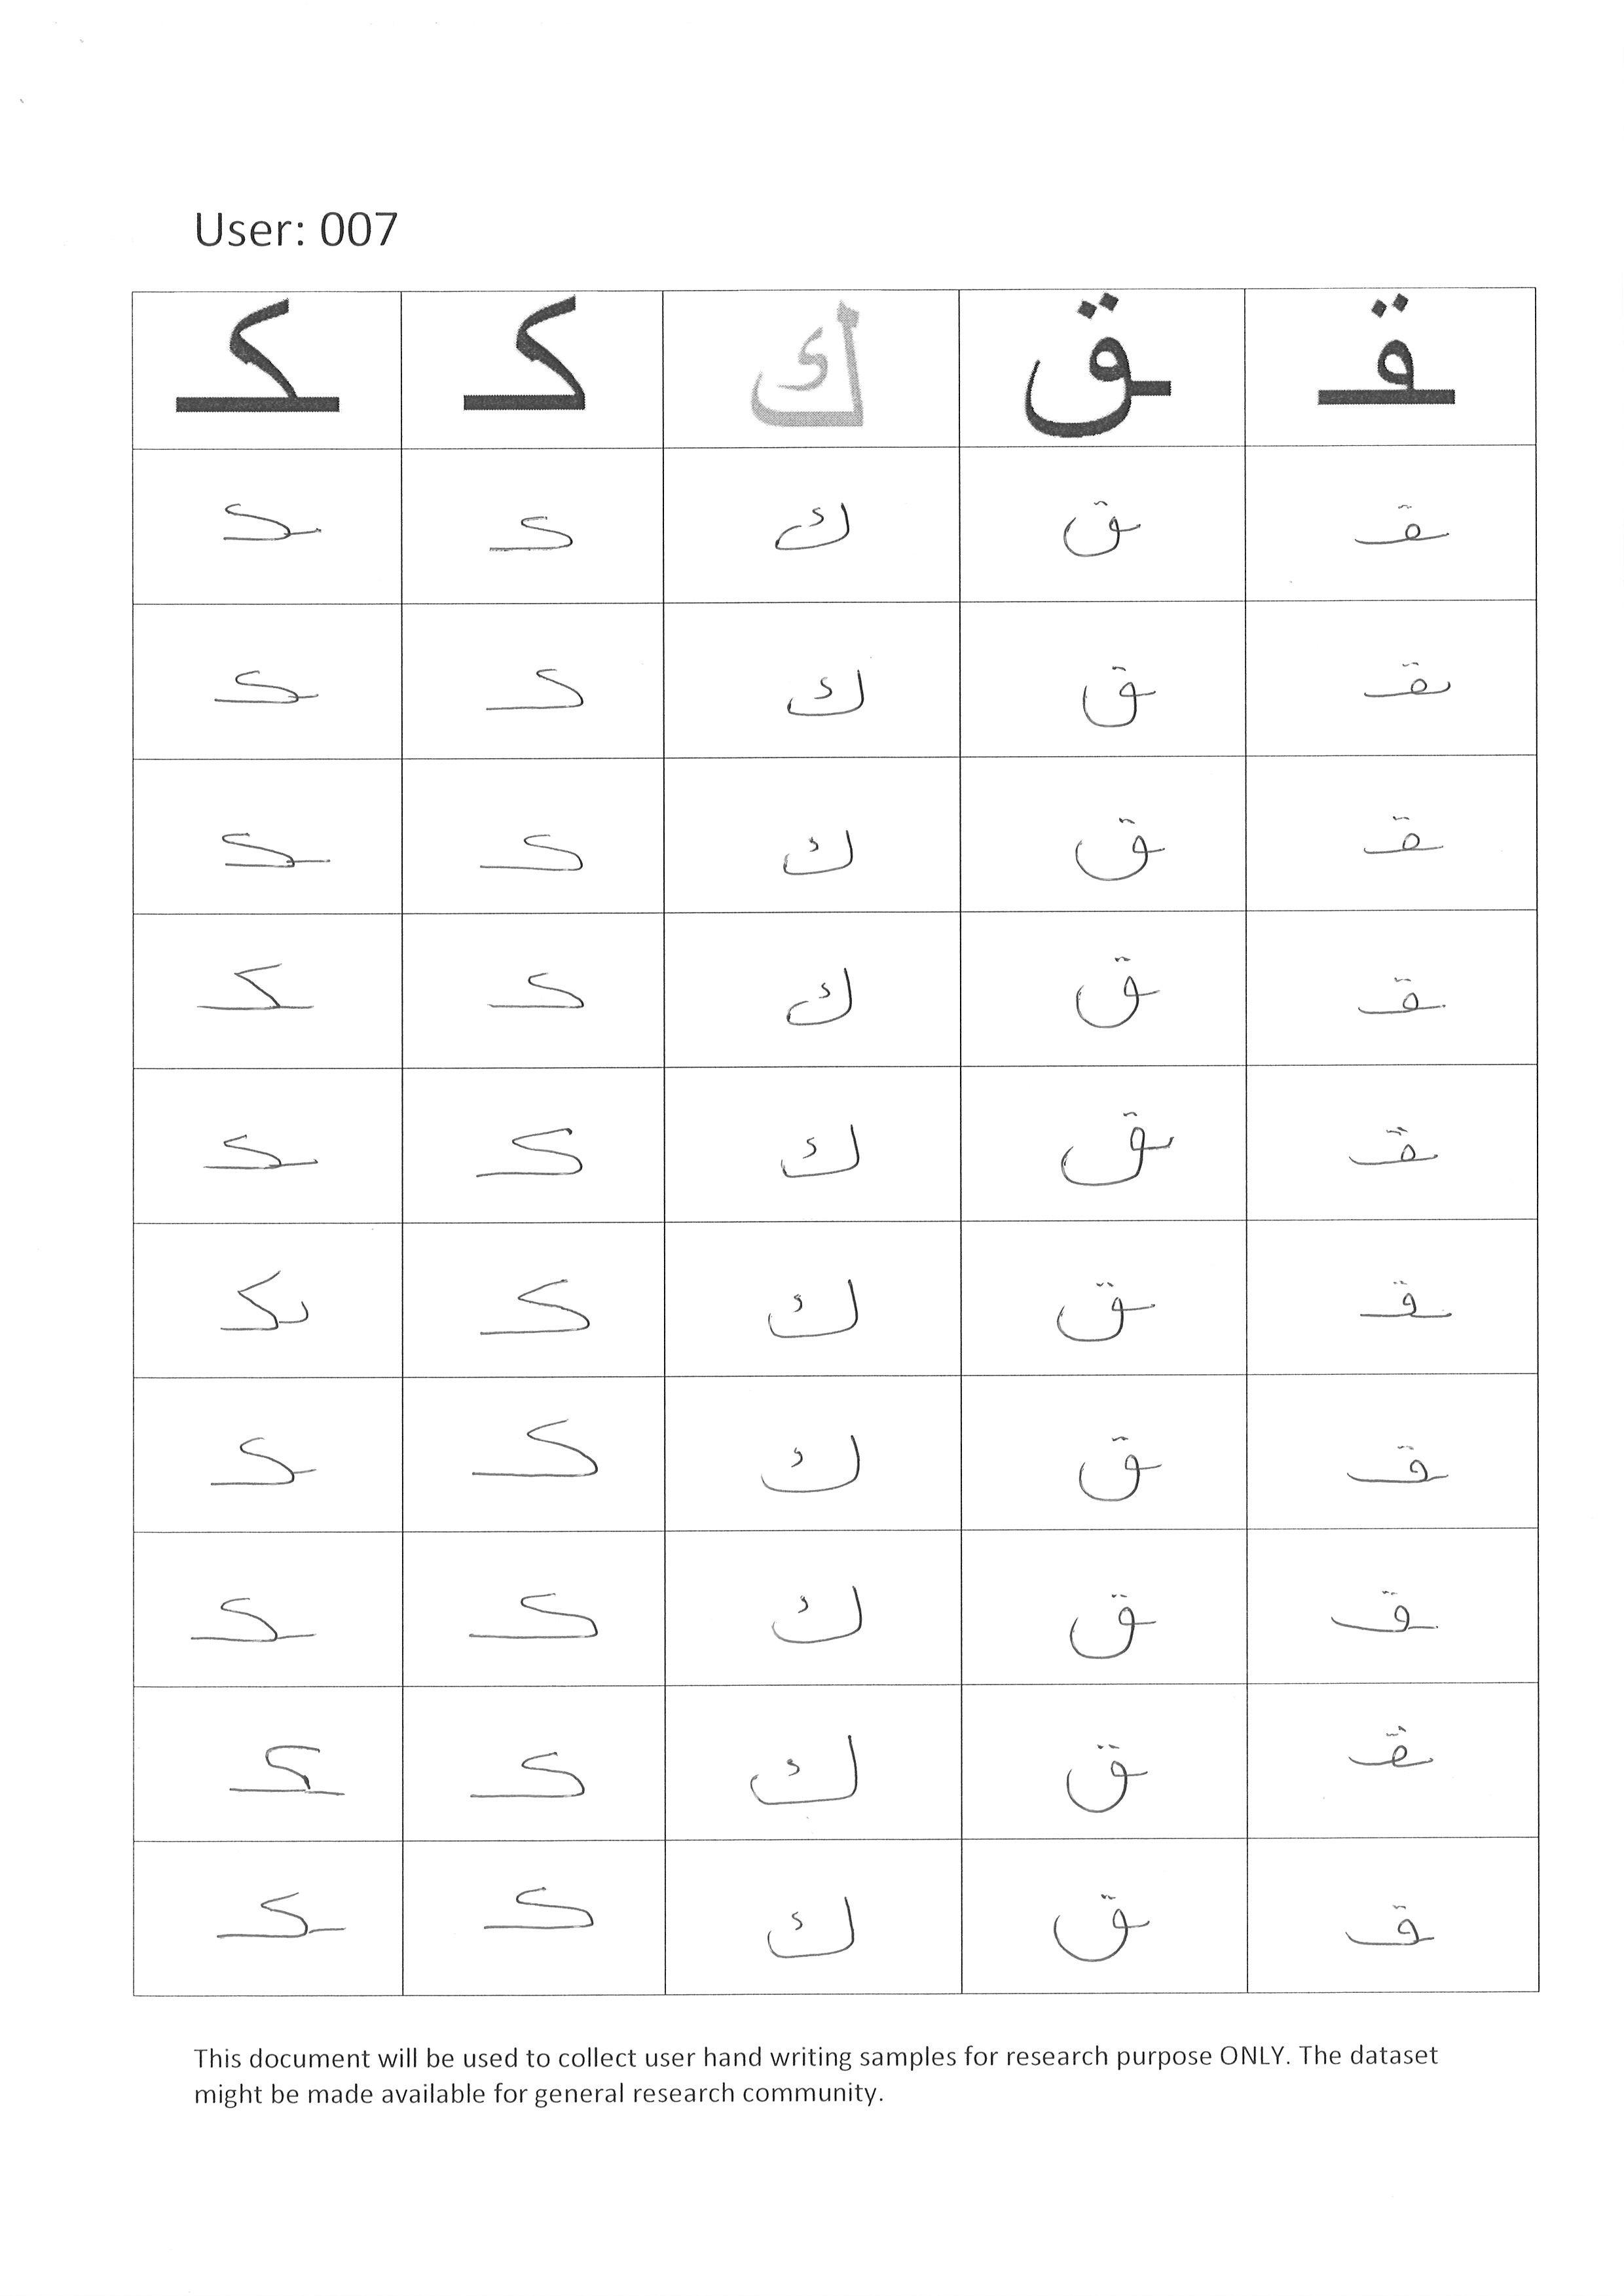 User: 007
ـقـ ـق ك كـ ـكـ
ـقـ ـق ك كـ ـكـ
ـقـ ـق ك كـ ـكـ
ـقـ ـق ك كـ ـكـ
ـقـ ـق ك كـ ـكـ
ـقـ ـق ك كـ ـكـ
ـقـ ـق ك كـ ـكـ
ـقـ ـق ك كـ ـكـ
ـقـ ـق ك كـ ـكـ
ـقـ ـق ك كـ ـكـ
ـقـ ـق ك كـ ـكـ
This document will be used to collect user hand writing samples for research purpose ONLY. The dataset
might be made available for general research community.